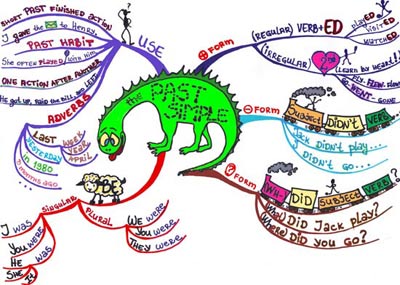 the PAST
SIMPLE
USE
SHORT PAST FINISHED ACTION
I gave the to Henry.
PAST HABIT
She often played with him
ONE ACTION AFTER ANOTHER
He got up, paid the bill and left
ADVERBS
LAST WEEK
YEAR
APRIL
YESTERDAY
in 1980
months ago
TO BE
SINGULAR
I was
You were
He was
She
It
PLURAL
We were
You were
They were
+ FORM
(REGULAR) VERB+ED
playED
visitED
watchED
IRREGULAR
2nd
LEARN BY HEART!!
GO WENT GONE
- FORM
SUBJECT DIDN'T VERB
Jack didn't play...
... didn't go...
? FORM
WH- DID SUBJECT VERB ?
(When) Did Jack play?
(Where) Did you go?